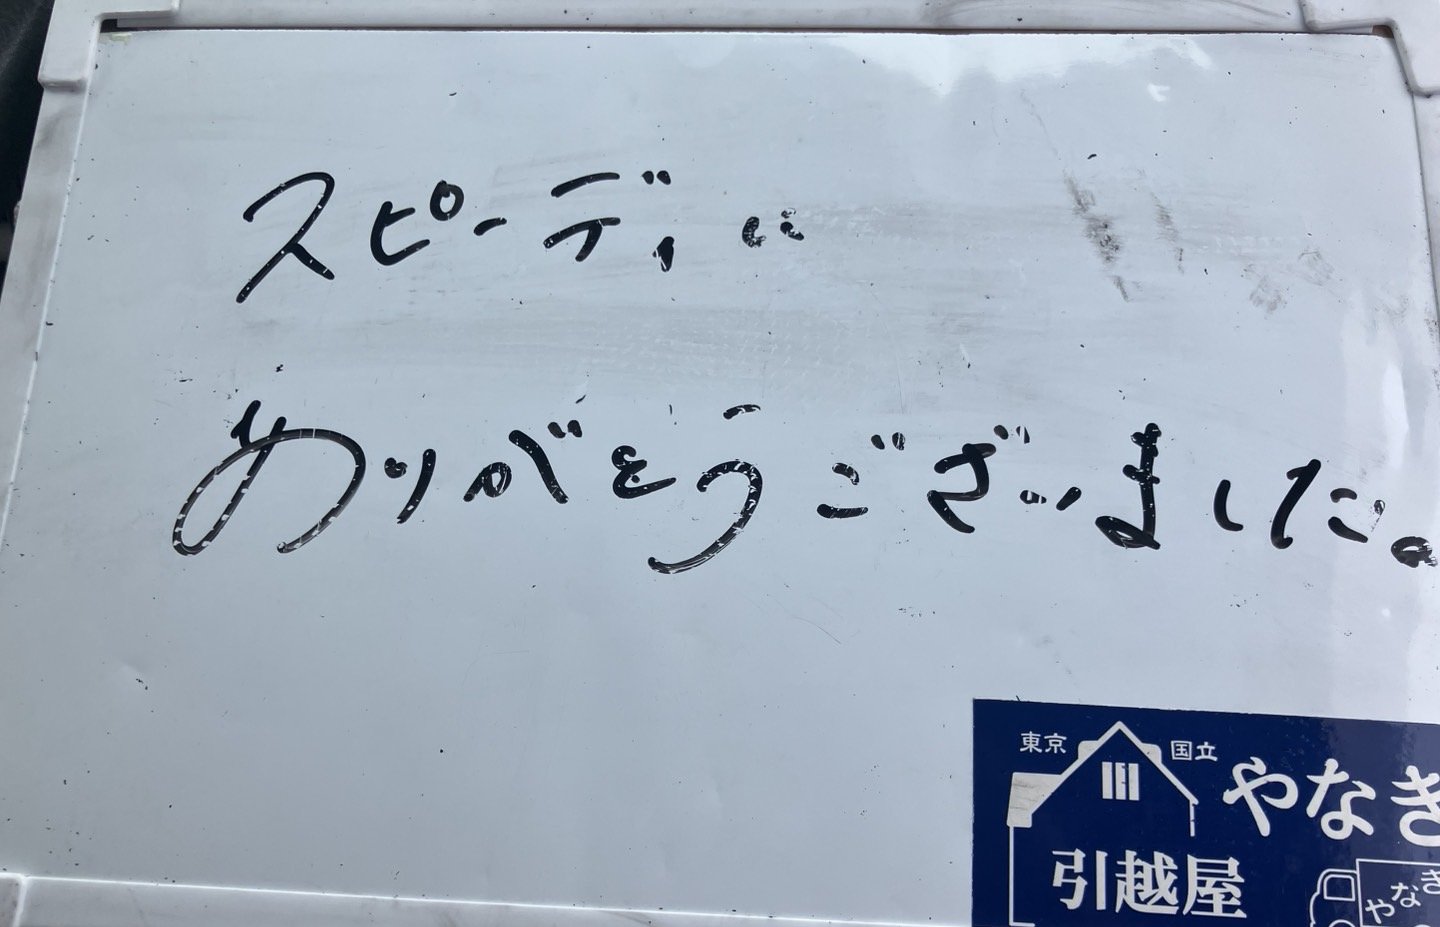 スピーディに
ありがとうございました。
東京 国立
やなき
引越屋
やなき